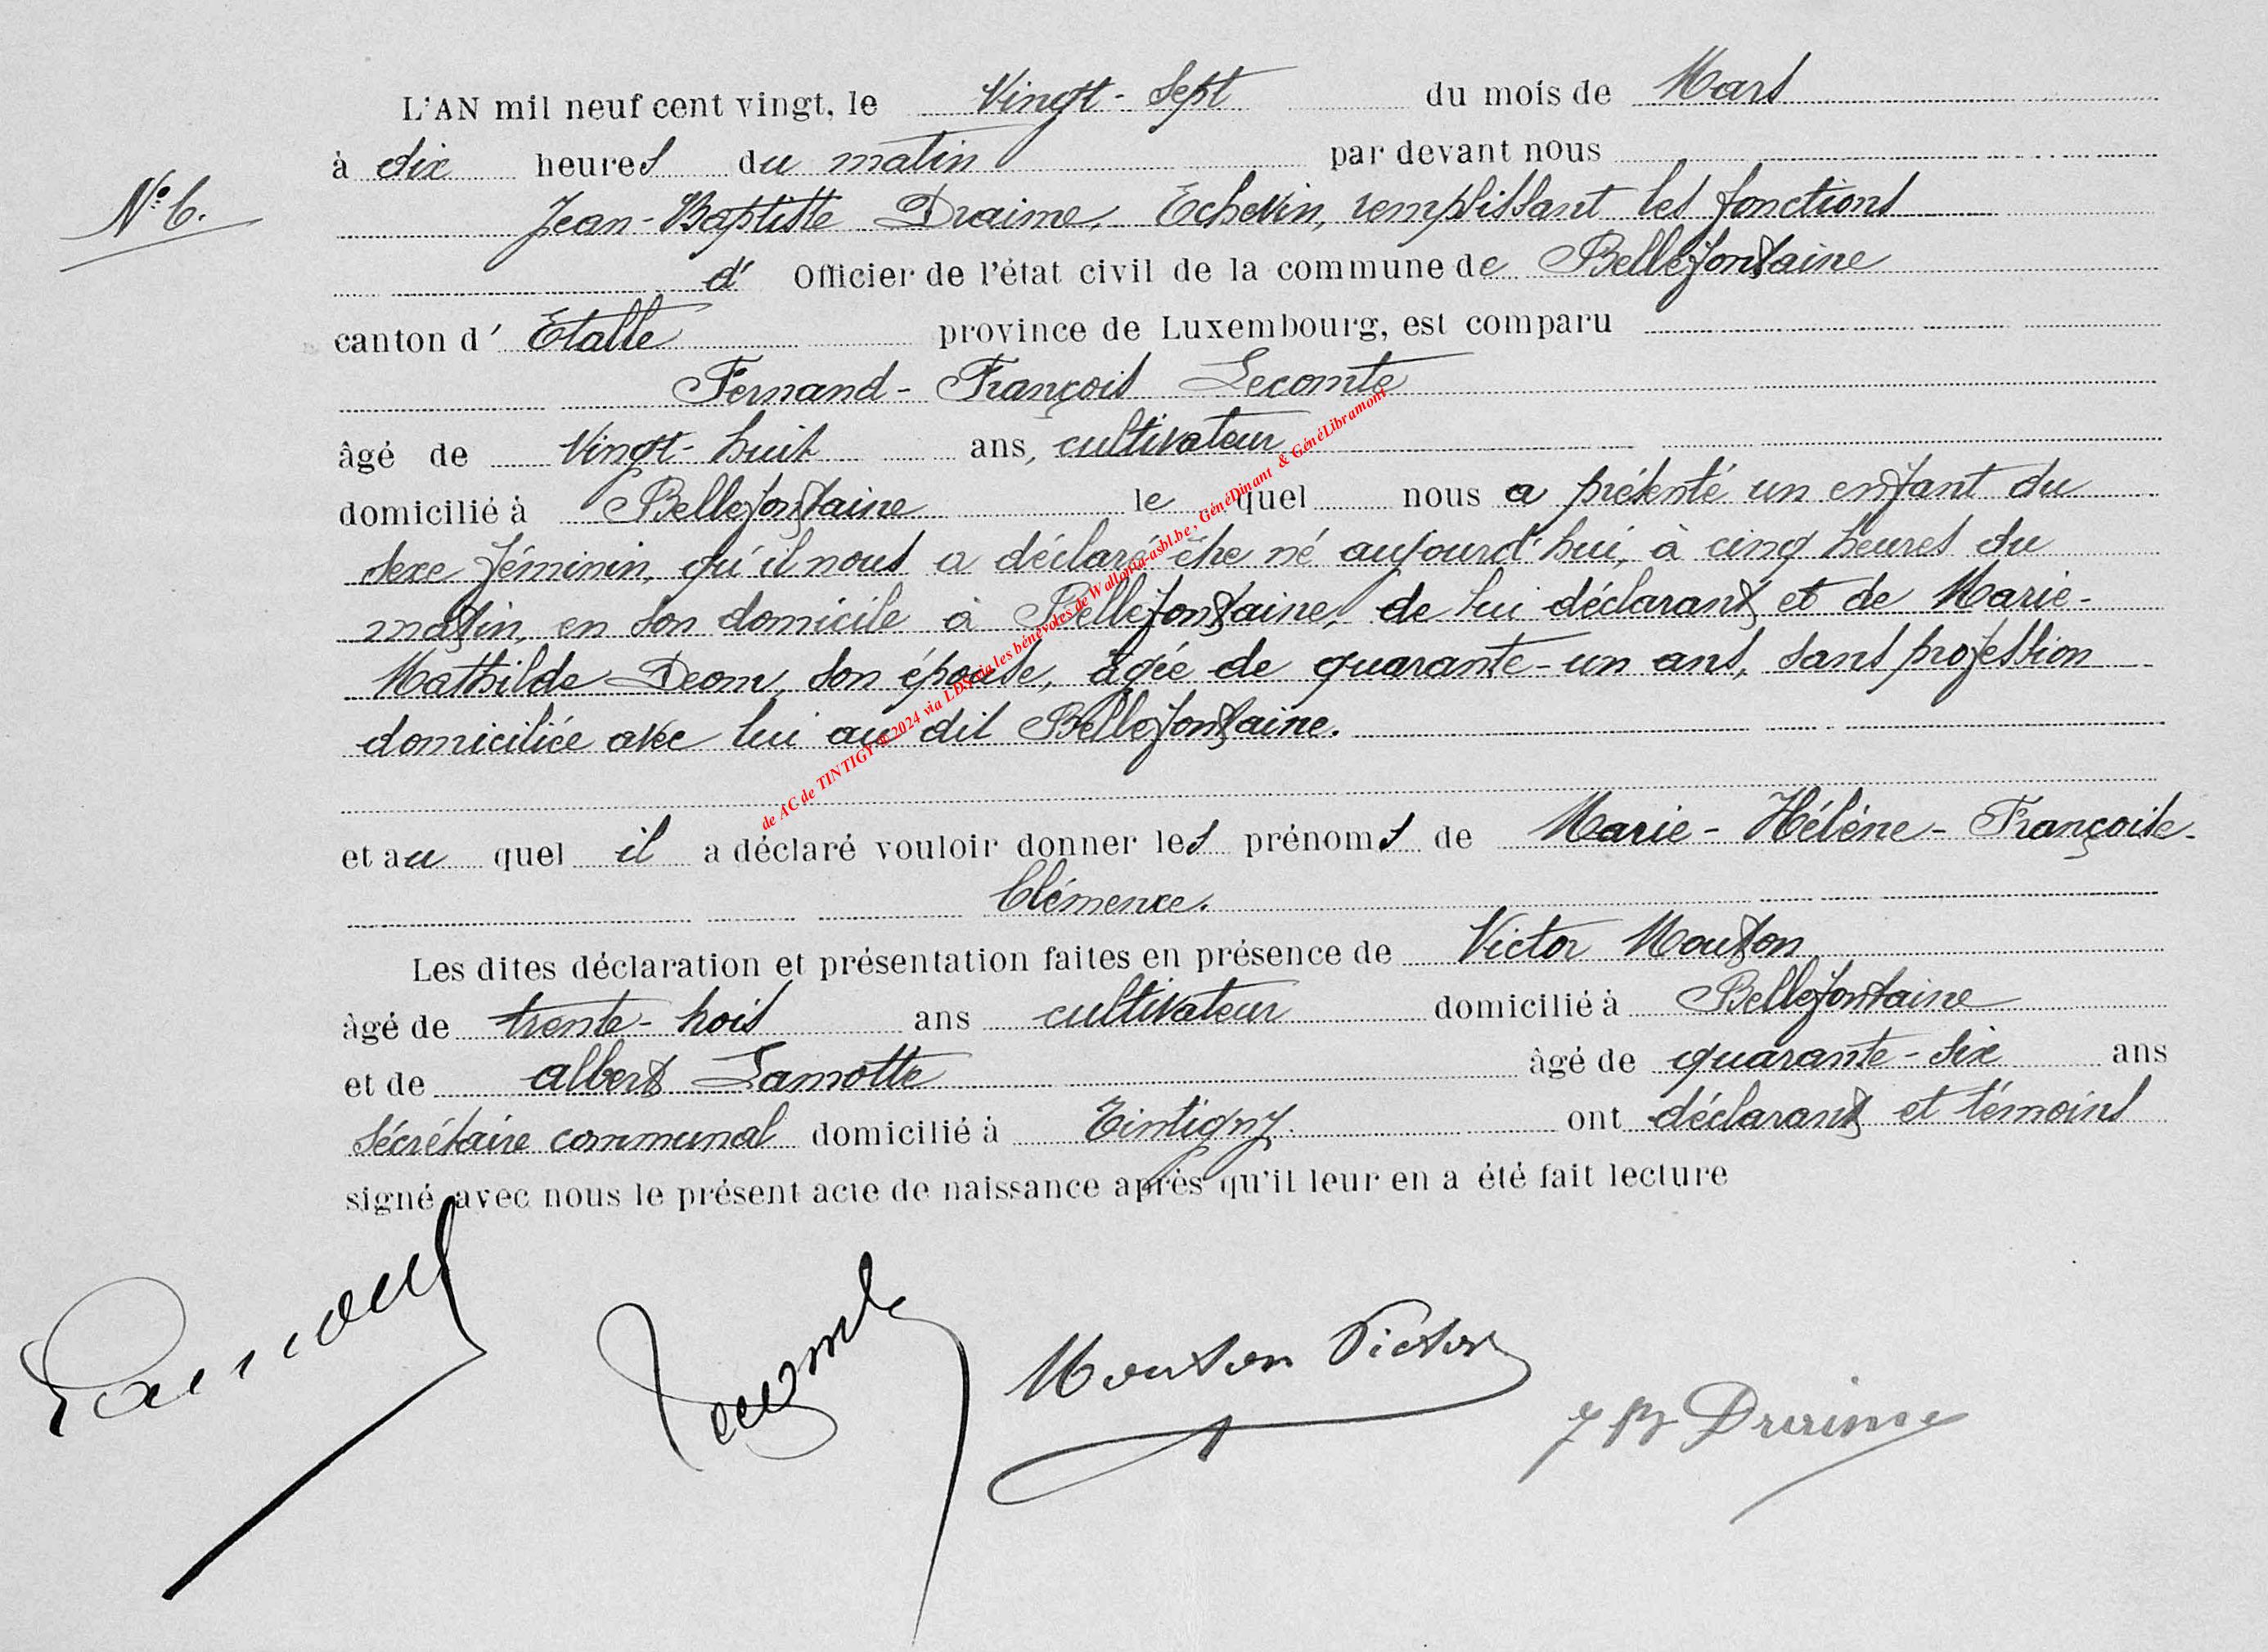 L'AN mil neuf cent vingt, le Vingt-Sept du mois de Mars
à dix heures du matin par devant nous
N° 6.
Jean-Baptiste Draime, Echevin, remplissant les fonctions
d' Officier de l'état civil de la commune de Bellefontaine
canton d' Etalle province de Luxembourg, est comparu
Fernand-François Lecomte
âgé de Vingt-huit ans, cultivateur
domicilié à Bellefontaine le quel nous a présenté un enfant du
sexe féminin, qu'il nous a déclaré être né aujourd'hui, à cinq heures du
matin, en son domicile à Bellefontaine, de lui déclarant et de Marie-
Mathilde Deom, son épouse, âgée de quarante-un ans, sans profession
domiciliée avec lui au dit Bellefontaine.
et au quel il a déclaré vouloir donner les prénoms de Marie-Hélène-Françoise-
Clémence.
Les dites déclaration et présentation faites en présence de Victor Mouton
âgé de trente-trois ans cultivateur domicilié à Bellefontaine
et de Albert Lamotte âgé de quarante-six ans
sécrétaire communal domicilié à Tintigny. ont déclarant et témoins
signé avec nous le présent acte de naissance après qu'il leur en a été fait lecture
Lecomte
Mouton Victor
J B Draime
de AC de TINTIGY @2024 via LDS via les bénévoles de Wallonia-asbl.be, GénéDinant & GénéLibramont